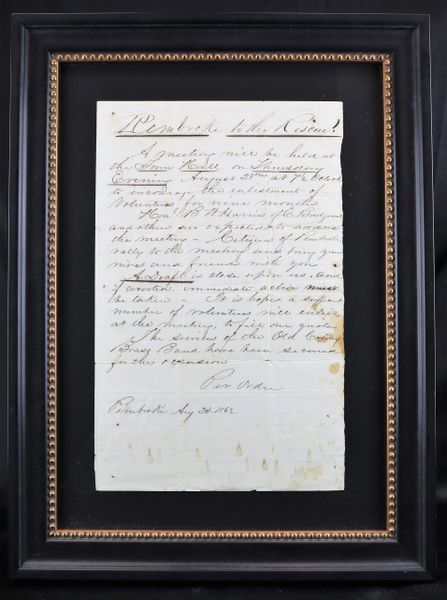 Pembroke to the Rescue!
A meeting will be held at
the Town Hall on Thursday
Evening August 28th at 7½ Oclock
to encourage the enlistment of
Volunteers for nine months
Hon B W Harris of E. Bridgewater
and others are expected to address
the meeting — Citizens of Pembroke
rally to the meeting and bring your
wives and friends with you
A Draft is close upon us, and
if avoided immediate action must
be taken — It is hoped a sufficient
number of volunteers will enlist
at the meeting, to fill our quota
The services of the Old Colony
Brass Band have been secured
for the occasion
Per Order
Pembroke Aug 1862